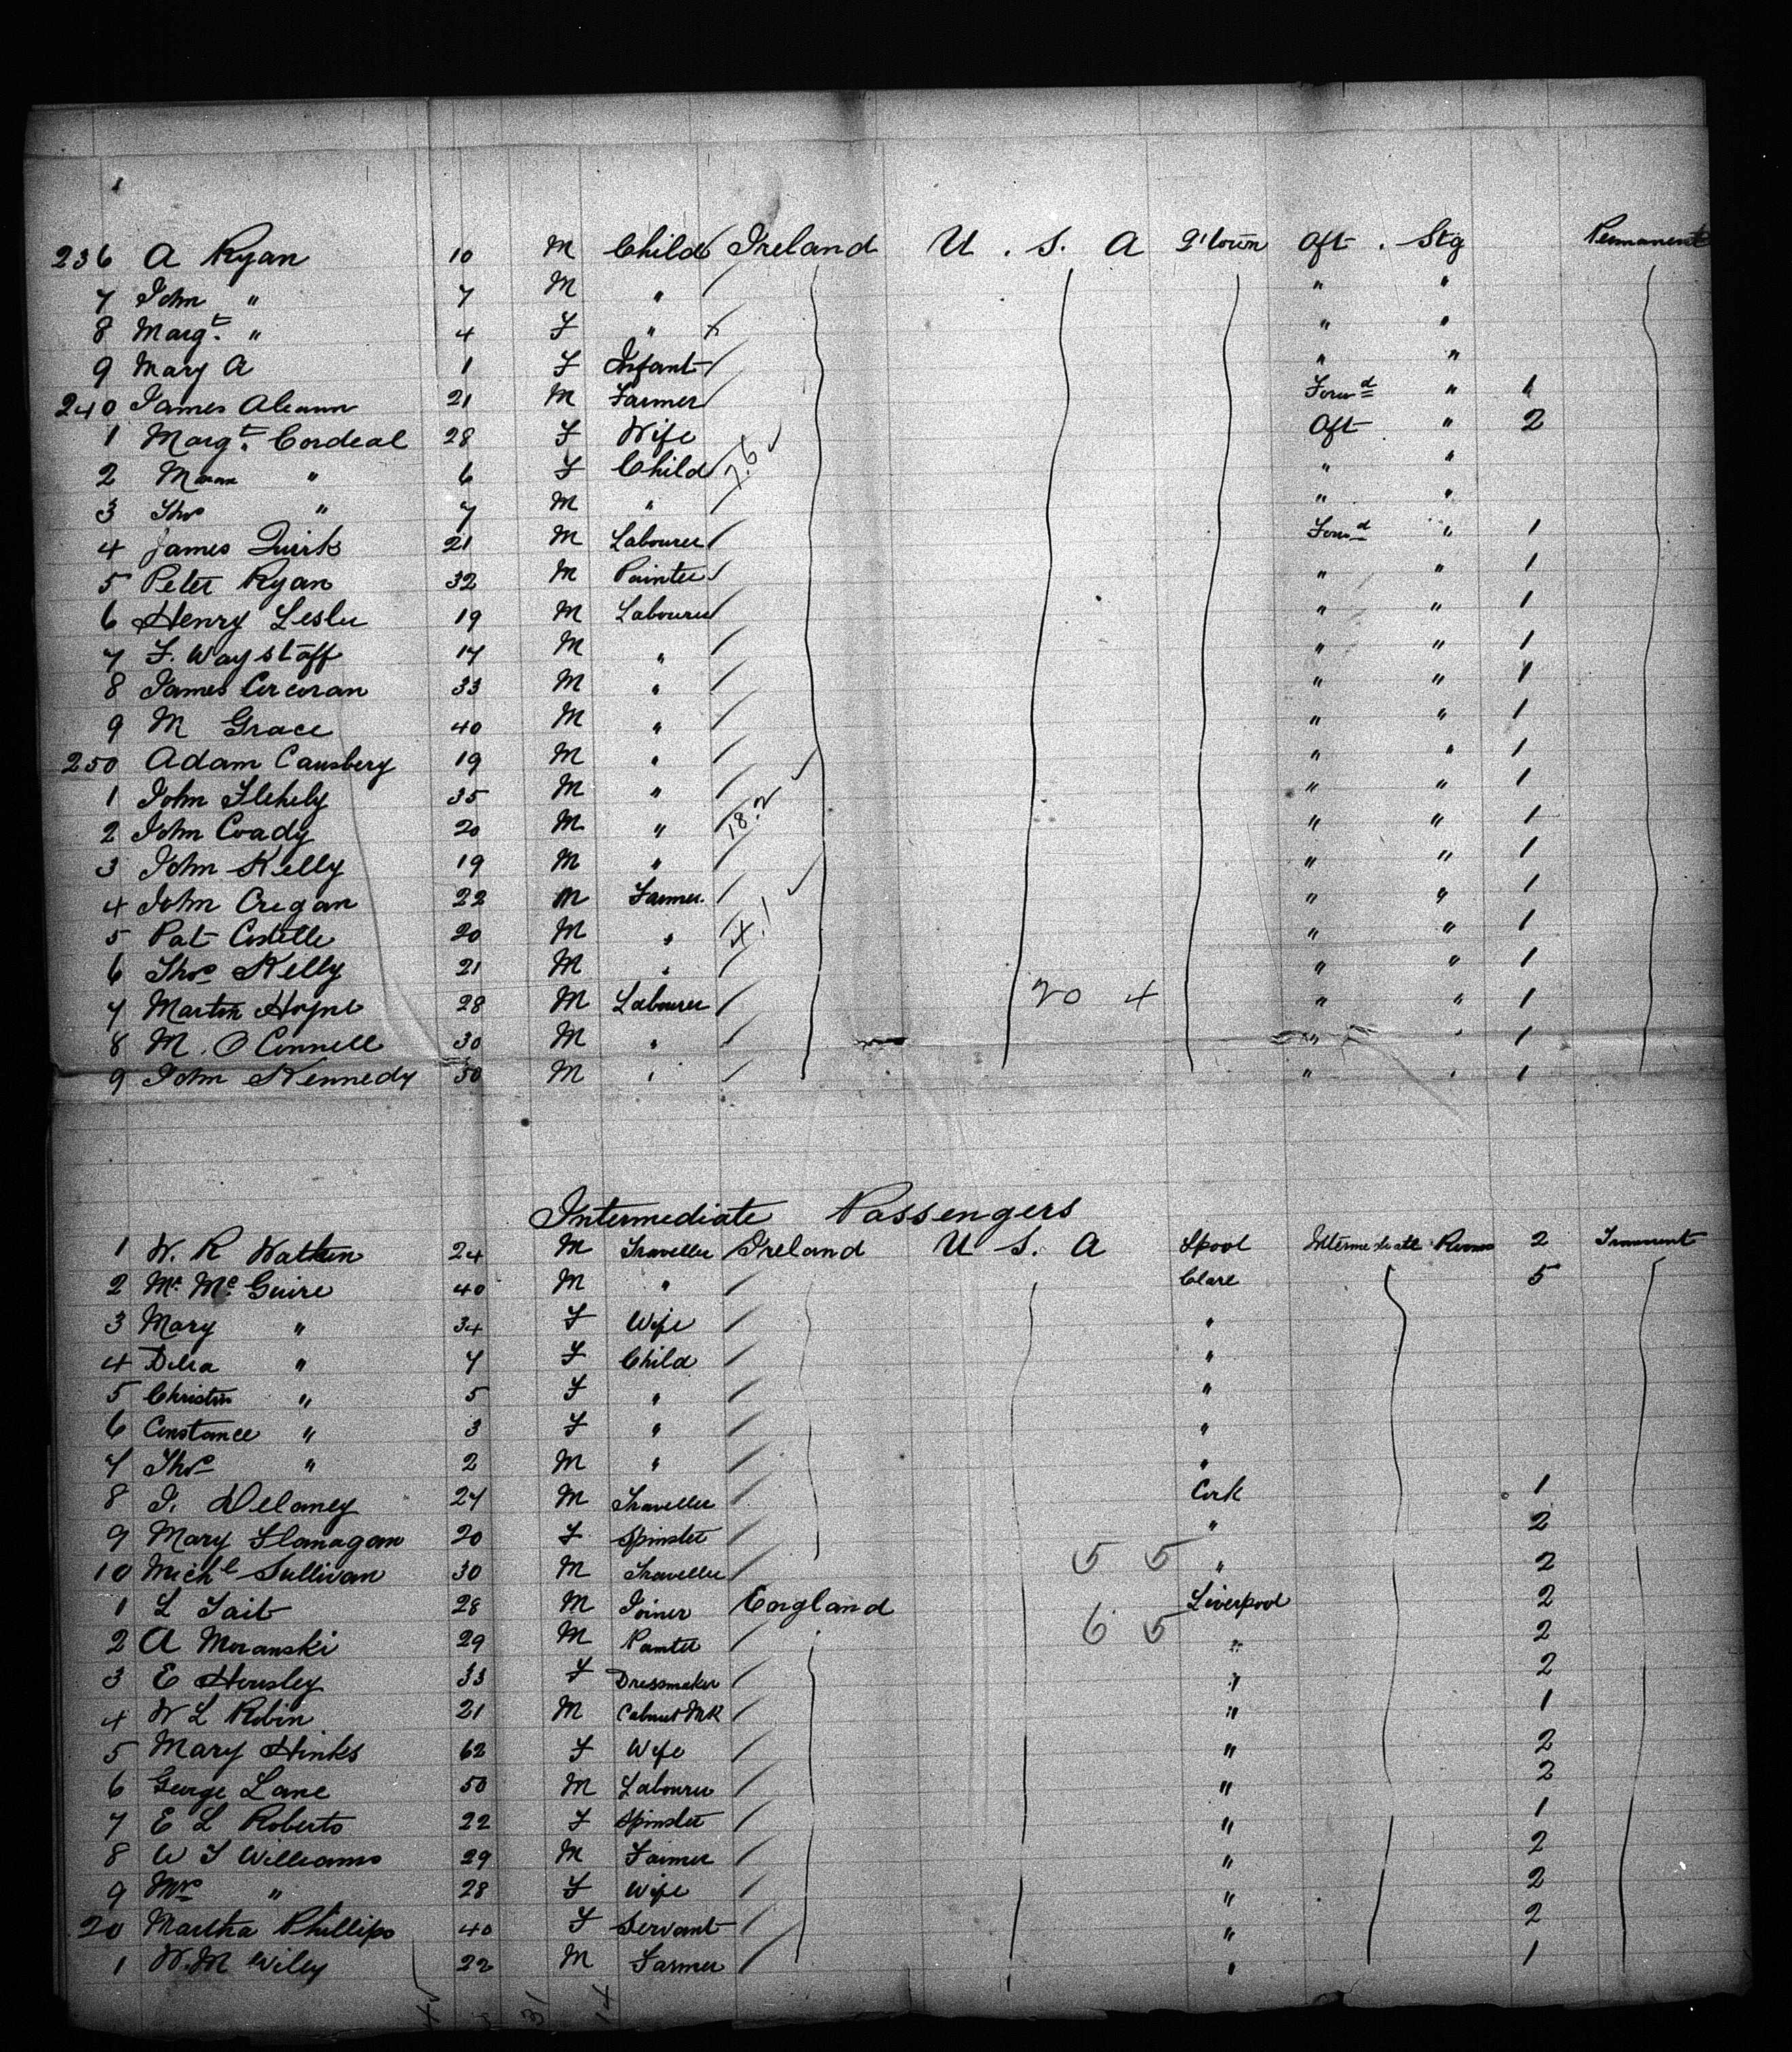 236 A Ryan 10 M Child Ireland U. S. A Q'town Aft. Stg Permanent
7 John " 7 M " " "
8 Margt. " 4 F " " "
9 Mary A 1 F Infant " "
240 James 21 M Farmer Forwd " 1
1 Margt. Cordeal 28 F Wife Aft " 2
2 " 6 F Child 7.6 " "
3 Thos " 7 M " " "
4 James Quirk 21 M Labourer Forwd " 1
5 Peter Ryan 32 M Painter " " 1
6 Henry Leslie 19 M Labourer " " 1
7 F. Waystaff 17 M " " " 1
8 James Corcoran 33 M " " " 1
9 M Grace 40 M " " " 1
250 Adam Causbery 19 M " " " 1
1 John Flehely 35 M " " " 1
2 John Coady 20 M " 18.2 " " 1
3 John Kelly 19 M " " " 1
4 John Cregan 22 M Farmer " " 1
5 Pat Costelle 20 M " 4.1 " " 1
6 Thos Kelly 21 M " " " 1
7 Martin Hoyne 28 M Labourer 20 4 " " 1
8 M. O Connell 30 M " " " 1
9 John Kennedy 30 M " " " 1
Intermediate Passengers
1 W. R Watken 24 M Traveller Ireland U S. A Lpool Intermediate Rooms 2 Transient
2 Mr. Mc Guire 40 M " Clare 5
3 Mary " 34 F Wife "
4 Delia " 7 F Child "
5 Christin " 5 F " "
6 Constance " 3 F " "
7 Thos " 2 M " "
8 J. Delaney 27 M Traveller Cork 1
9 Mary Flanagan 20 F Spinster " 2
10 Michl Sullivan 30 M Traveller 5 5 " 2
1 L Tait 28 M Joiner England Liverpool 2
2 A Moranski 29 M Painter 6 5 " 2
3 E Housley 33 F Dressmaker " 2
4 W L Robin 21 M Cabinet MK " 1
5 Mary Hinks 62 F Wife " 2
6 George Lane 50 M Labourer " 2
7 E L Roberts 22 F Spinster " 1
8 W J Williams 29 M Farmer " 2
9 Mrs " 28 F Wife " 2
20 Martha Phillips 40 F Servant " 2
1 W. M Wiley 22 M Farmer " 1
31 14